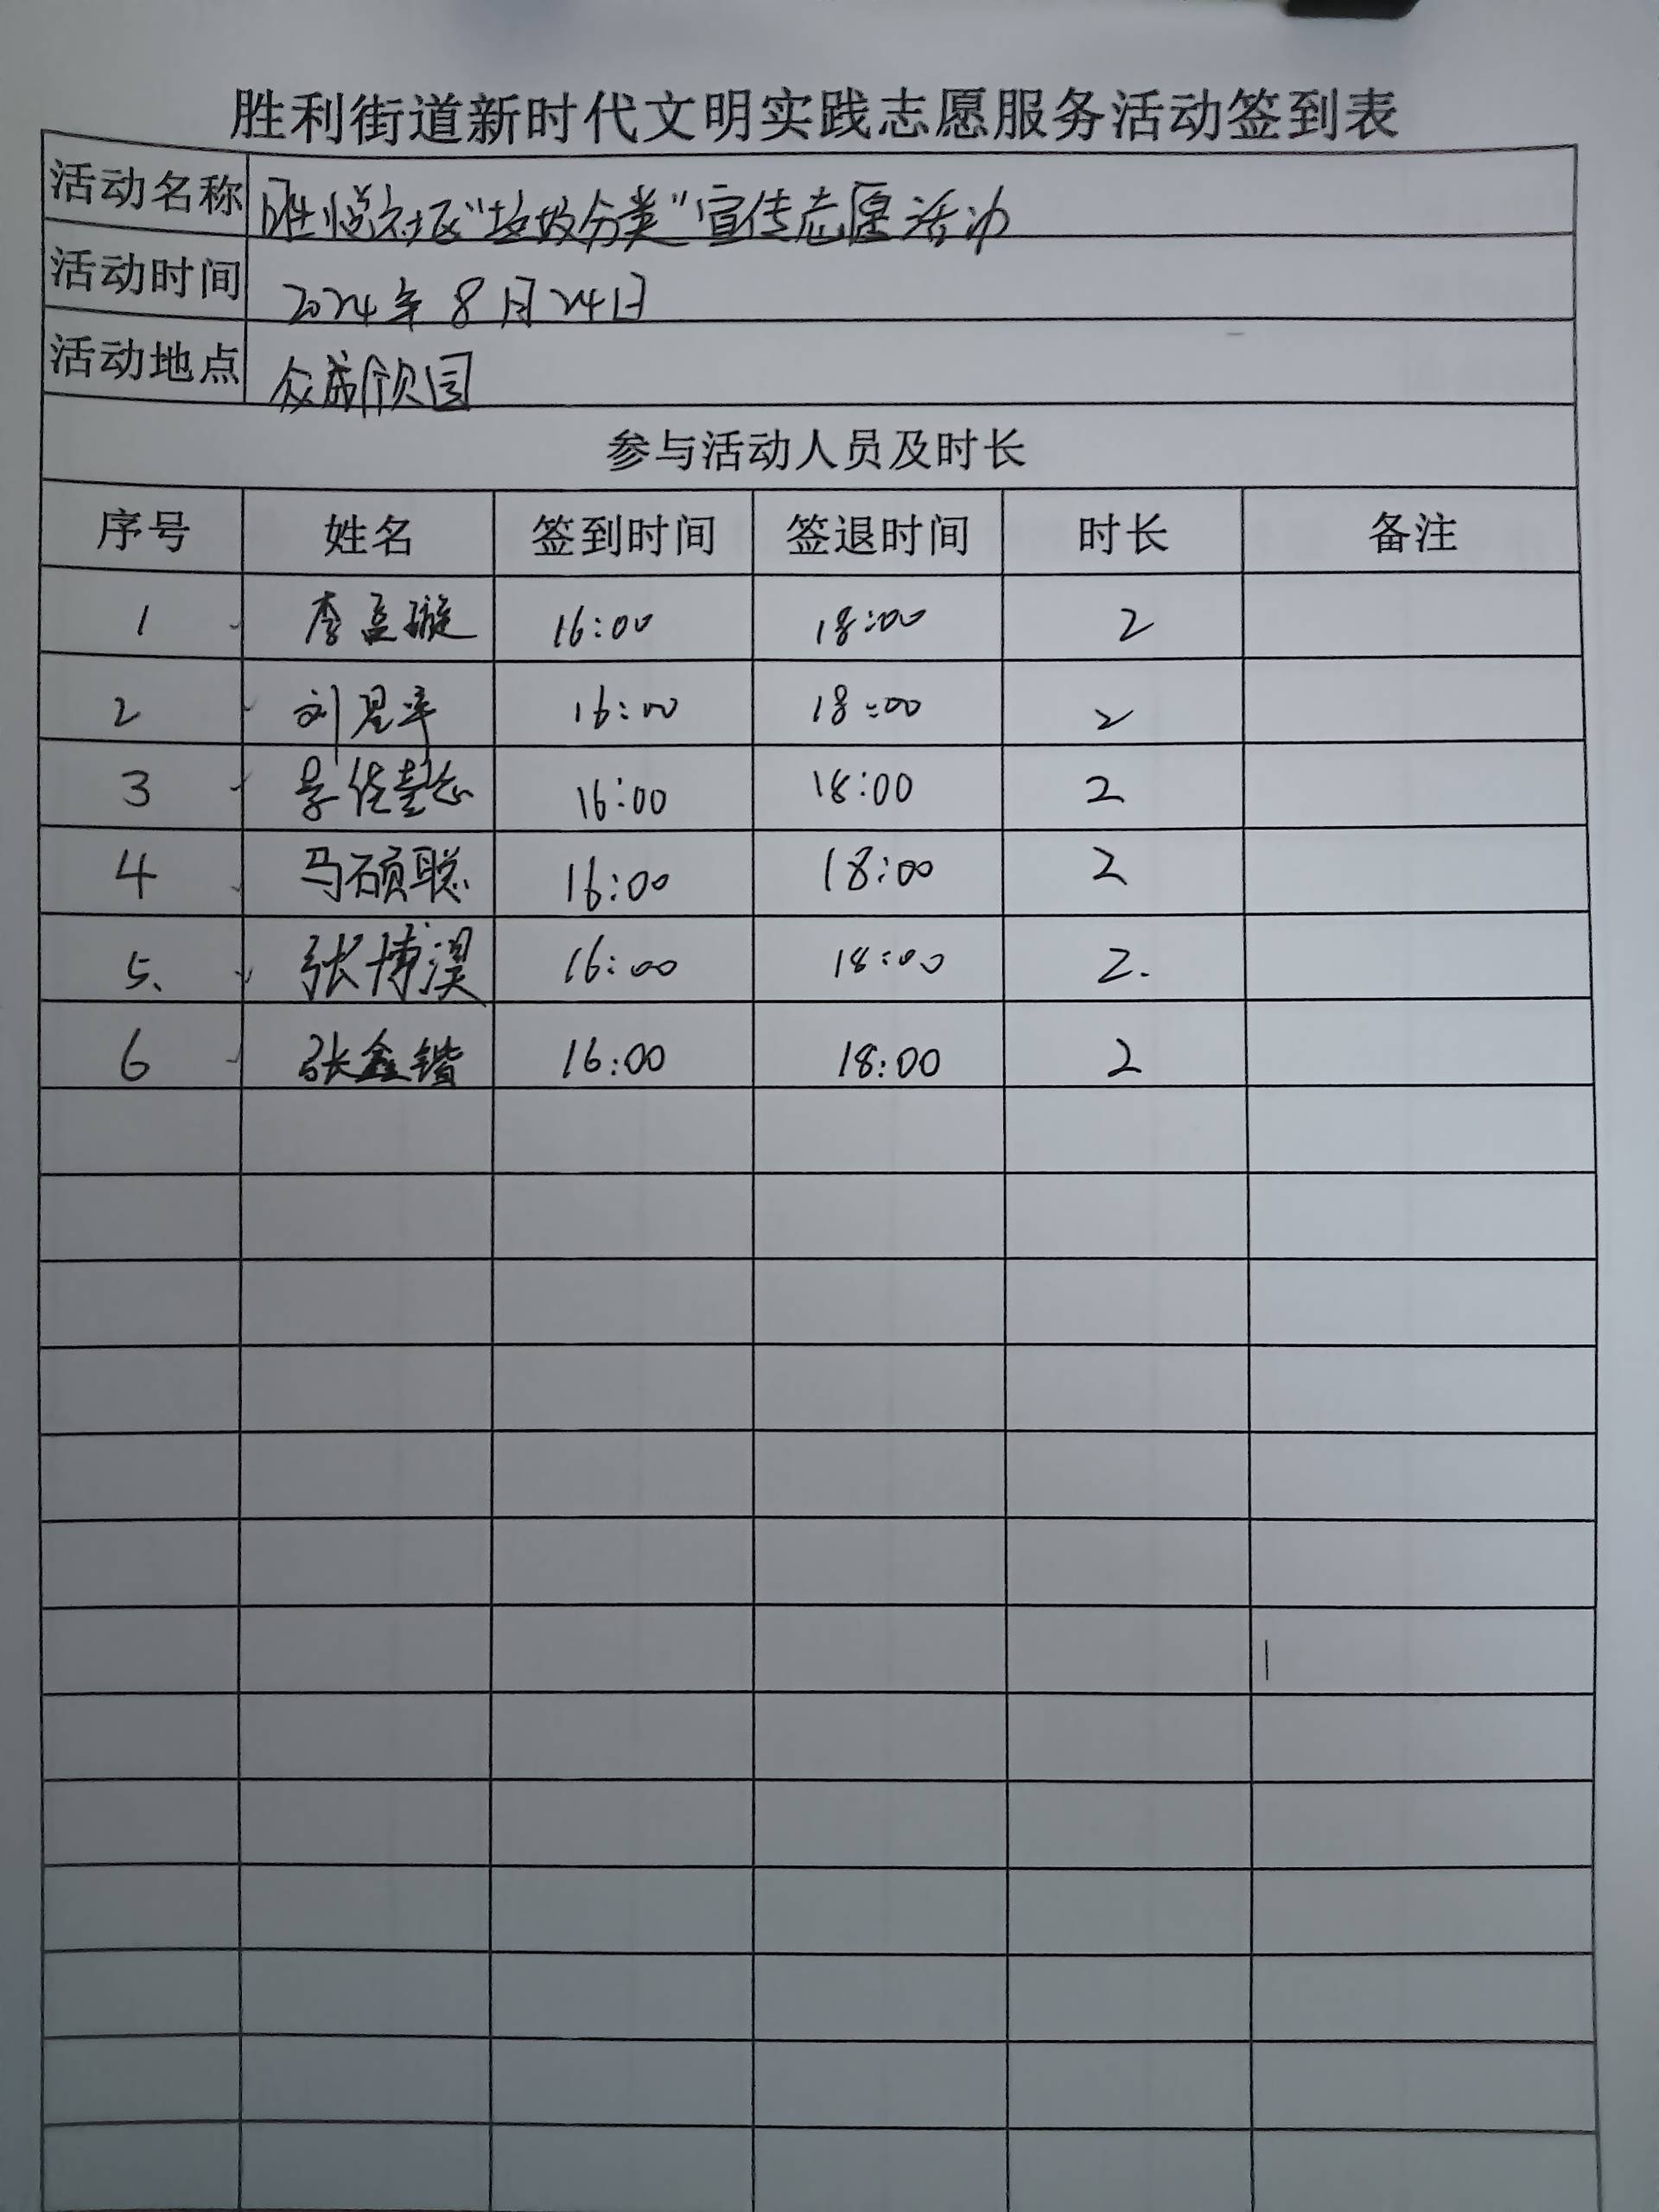 胜利街道新时代文明实践志愿服务活动签到表
活动名称 胜悦社区“垃圾分类”宣传志愿活动
活动时间 2024年8月24日
活动地点 众成颐园
参与活动人员及时长
序号 姓名 签到时间 签退时间 时长 备注
1 李孟璇 16:00 18:00 2
2 刘昱 16:00 18:00 2
3 佳懿 16:00 18:00 2
4 马硕聪 16:00 18:00 2
5、 张博淏 16:00 18:00 2.
6 张鑫锴 16:00 18:00 2